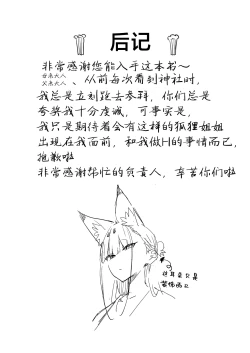 后记
非常感谢您能入手这本书~
、从前每次看到神社时,
我总是立刻跑去参拜,你们总是
夸奖我十分虔诚,可事实是,
我只是期待着会有这样的狐狸姐姐
出现在我面前,和我做H的事情而已,
抱歉啦
非常感谢帮忙的负责人,辛苦你们啦
这耳朵只是
装饰而已